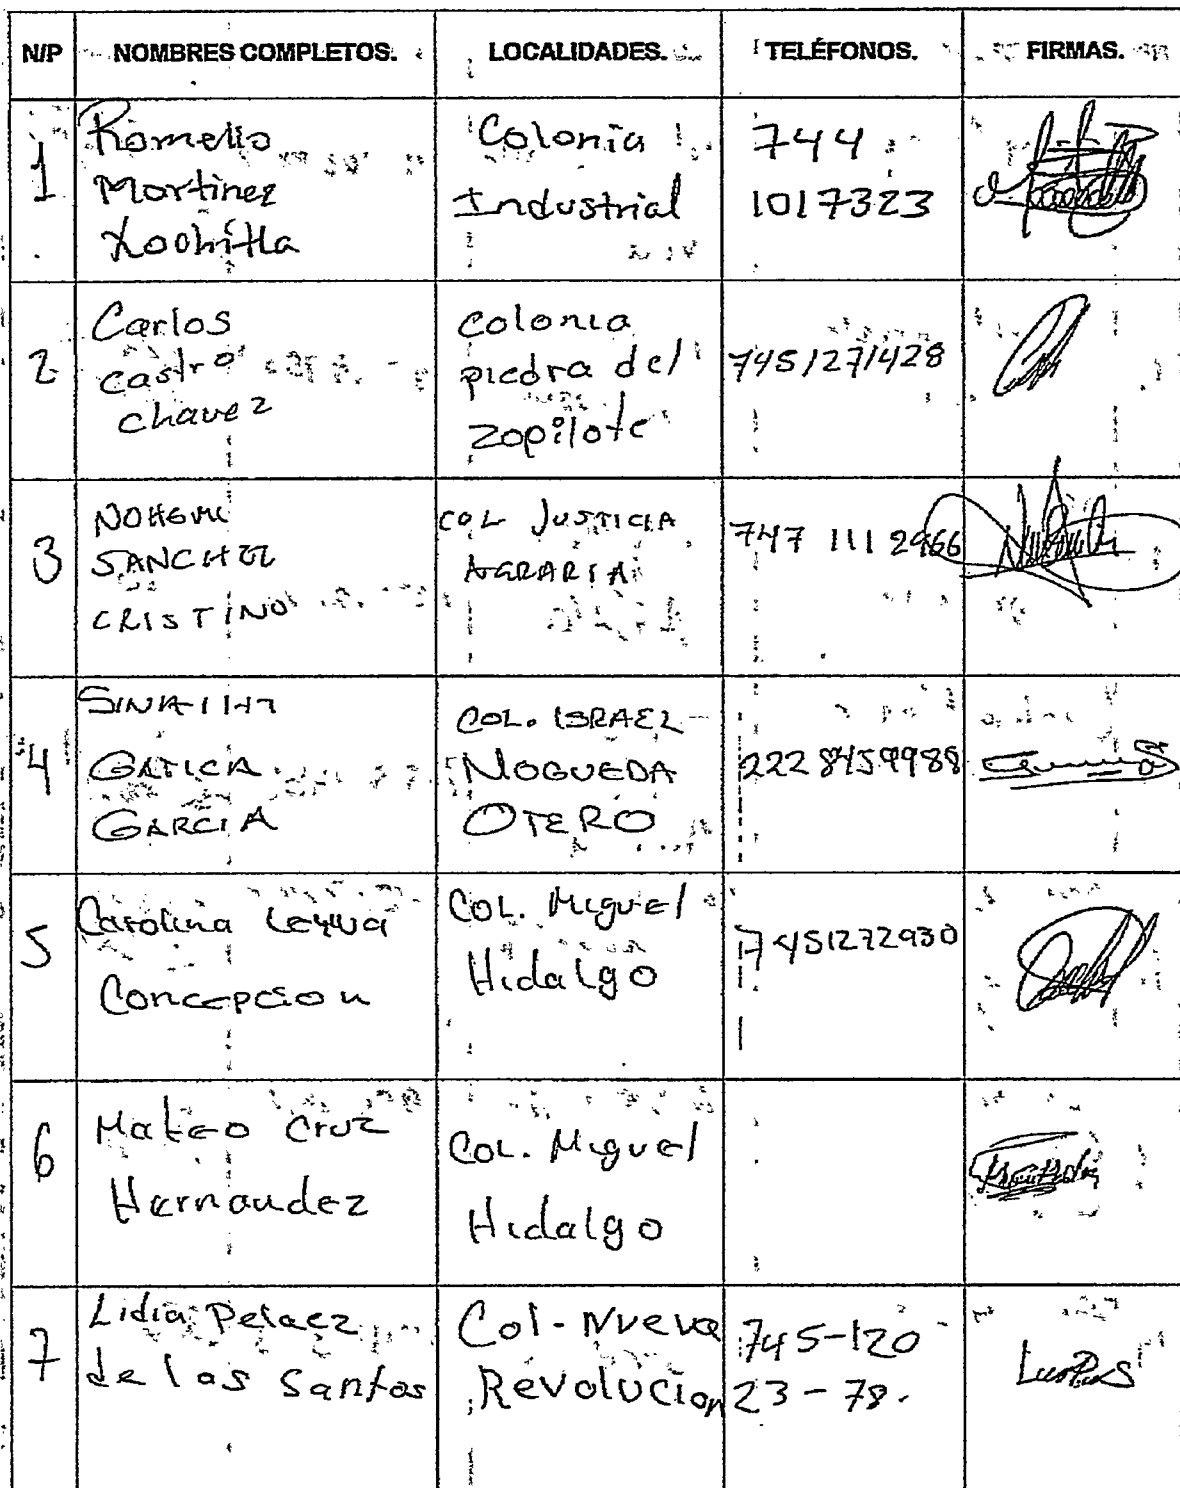 N/P NOMBRES COMPLETOS. LOCALIDADES. TELÉFONOS. FIRMAS.
1
Romello
Martinez
Xochitla
Colonia
Industrial
744
1017323
2
Carlos
castro
chavez
colonia
piedra del
zopilote
7451271428
3
NOHEMI
SANCHEZ
CRISTINO
COL JUSTICIA
AGRARIA
747 111 2966
4
GATICA
GARCIA
COL. ISRAEL
NOGUEDA
OTERO
222 8459988
5
Carolina Leyva
Concepcion
COL. Miguel
Hidalgo
7451272930
6
Mateo Cruz
Hernandez
COL. Miguel
Hidalgo
7
Lidia Pelaez
de los Santos
Col. Nueva
Revolucion
745-120
23-78.